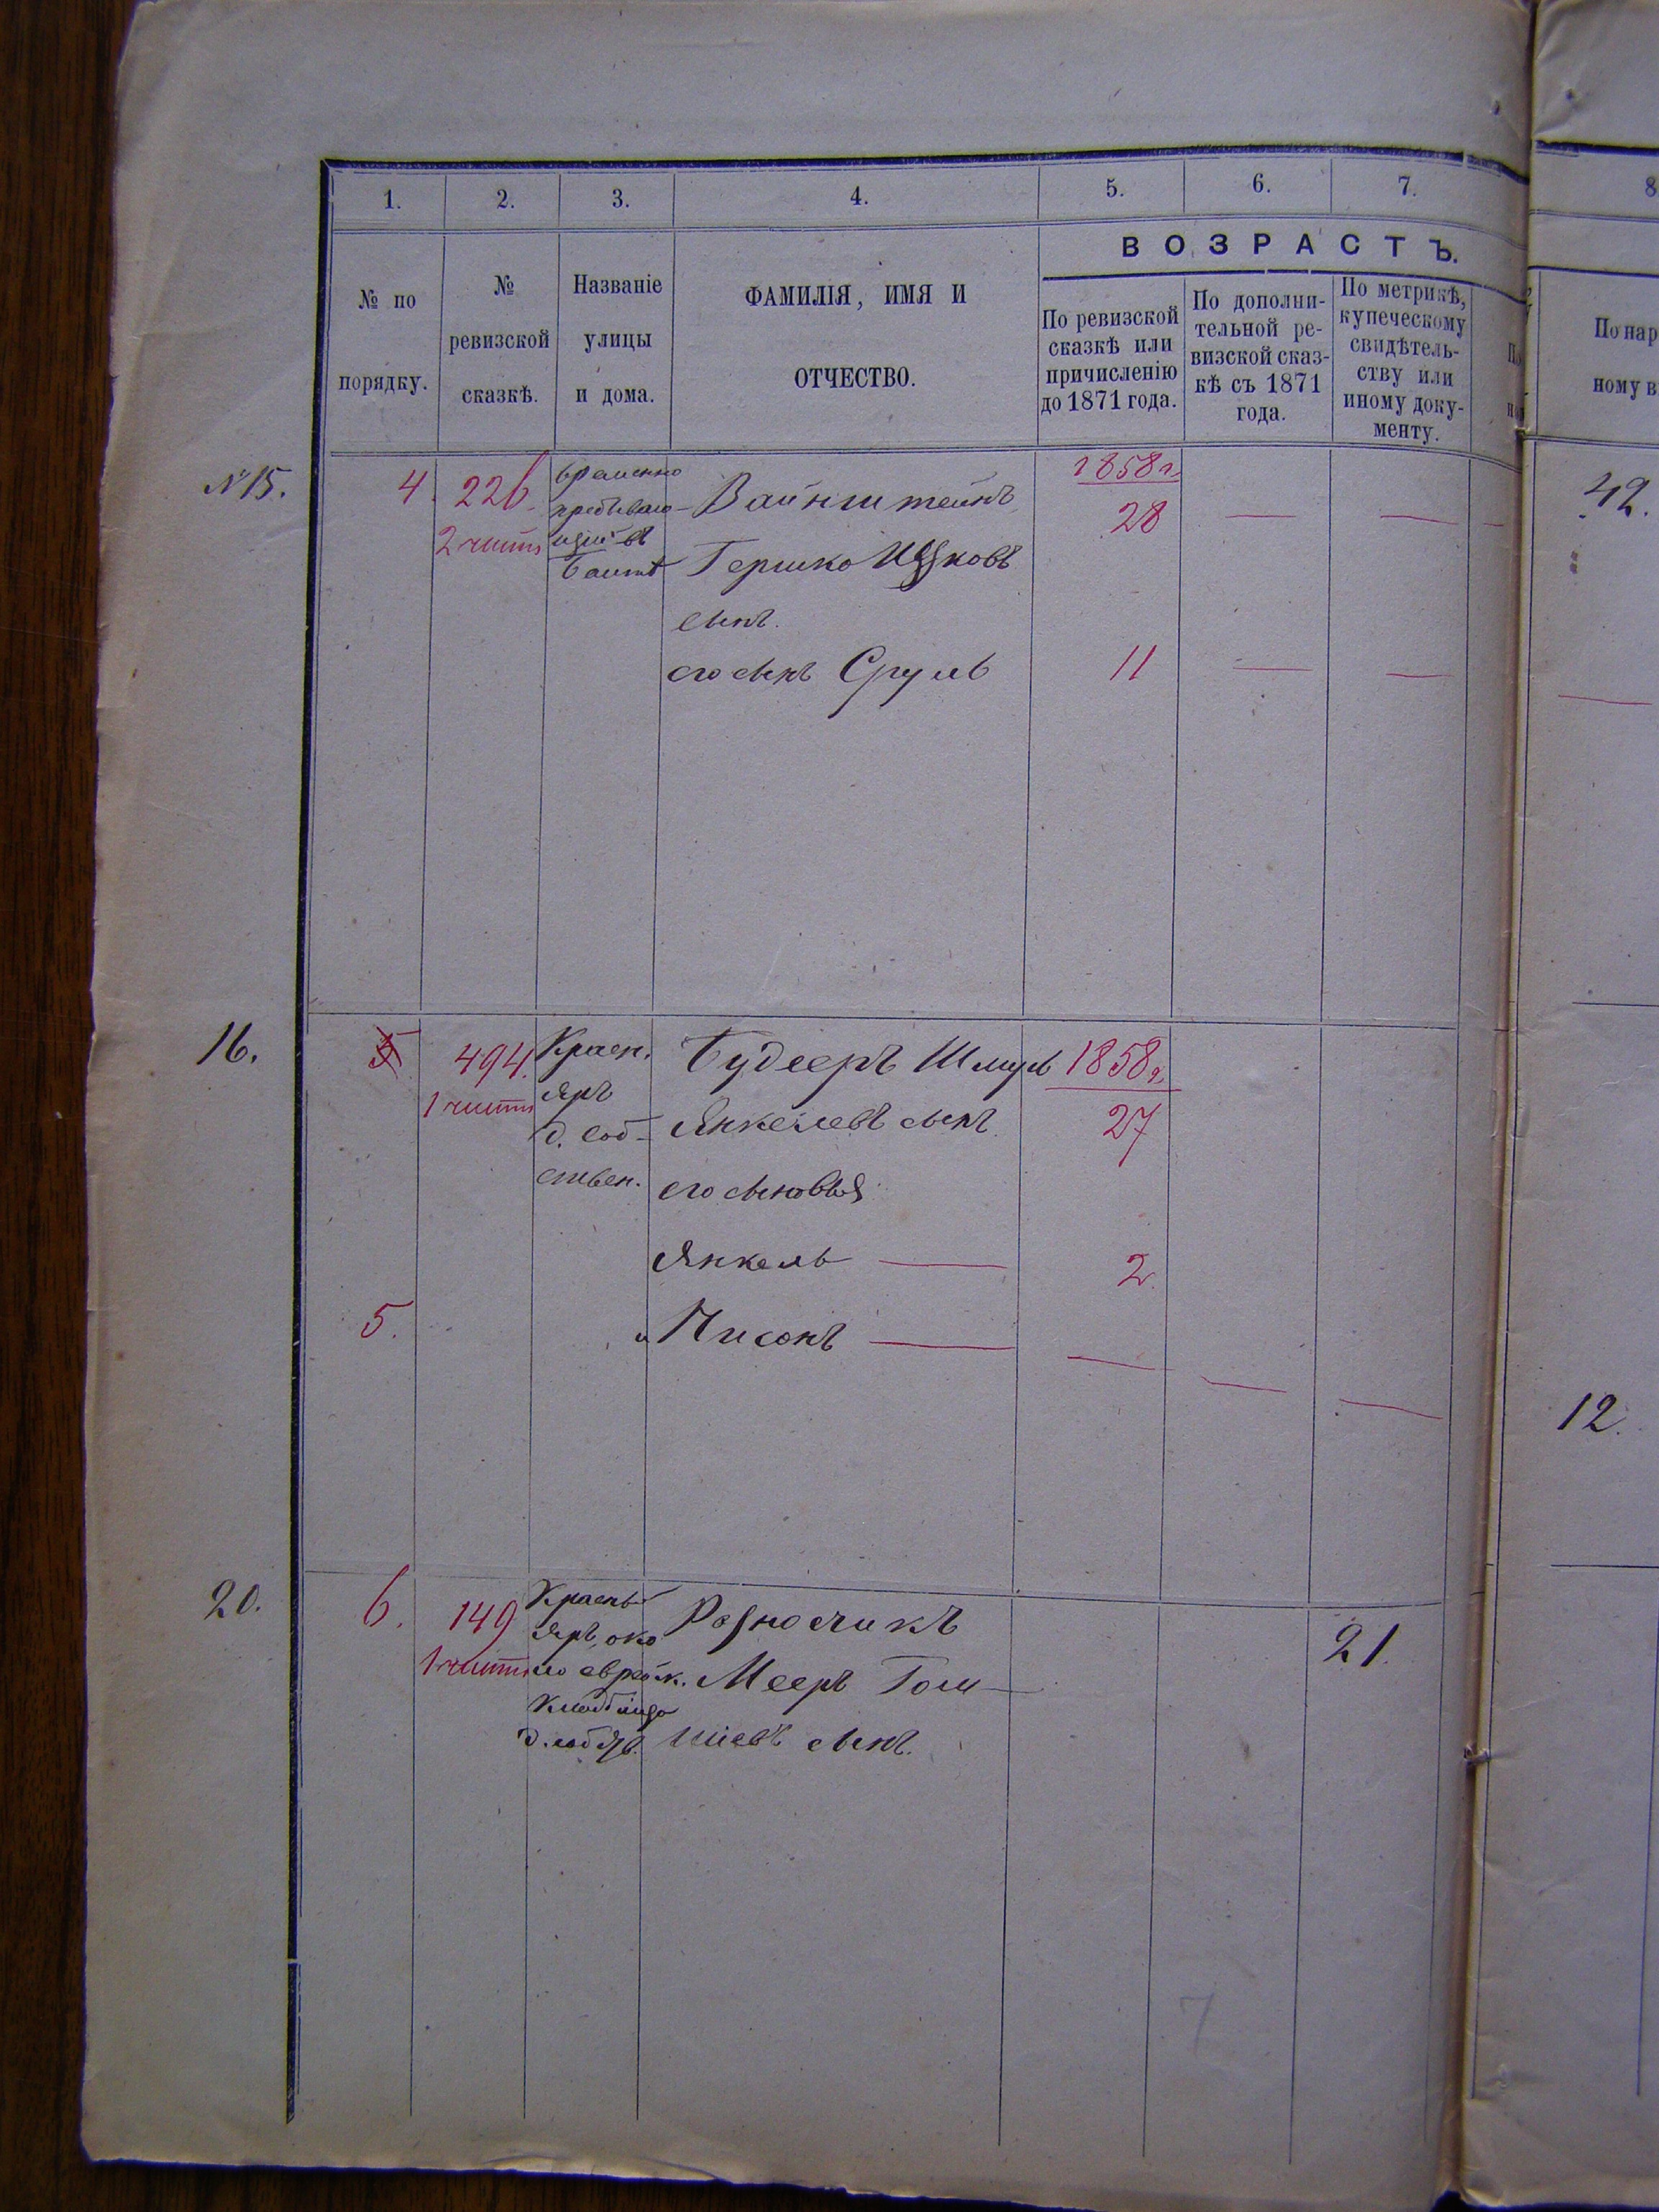 1. 2. 3. 4. 5. 6. 7. 8
ВОЗРАСТЪ.
№ по порядку.
№ ревизской сказкѣ.
Названіе улицы и дома.
ФАМИЛІЯ, ИМЯ И ОТЧЕСТВО.
По ревизской сказкѣ или причисленію до 1871 года.
По дополнительной ревизской сказкѣ съ 1871 года.
По метрикѣ, купеческому свидѣтельству или иному документу.
По нар
ному в
№ 15. 4. 226. временно Вайнштейнъ 1858 г. 28 — — 42.
2 части пребываю-
щій въ Гершко Ицковъ
Балтѣ
сынъ.
его сынъ Сруль 11 — —
16. 5 494. Красн. Будееръ Шмуль 1858 г.
1 части Яръ Янкелевъ сынъ 27
д. соб-
ствен. его сыновья
Янкель — 2.
5. и Нисонъ — — — — 12.
20. 6. 149 Красн. Разносчикъ 21.
1 части Яръ, око
ло еврейк. Мееръ Гом-
кладбища
шіевъ сынъ.
7